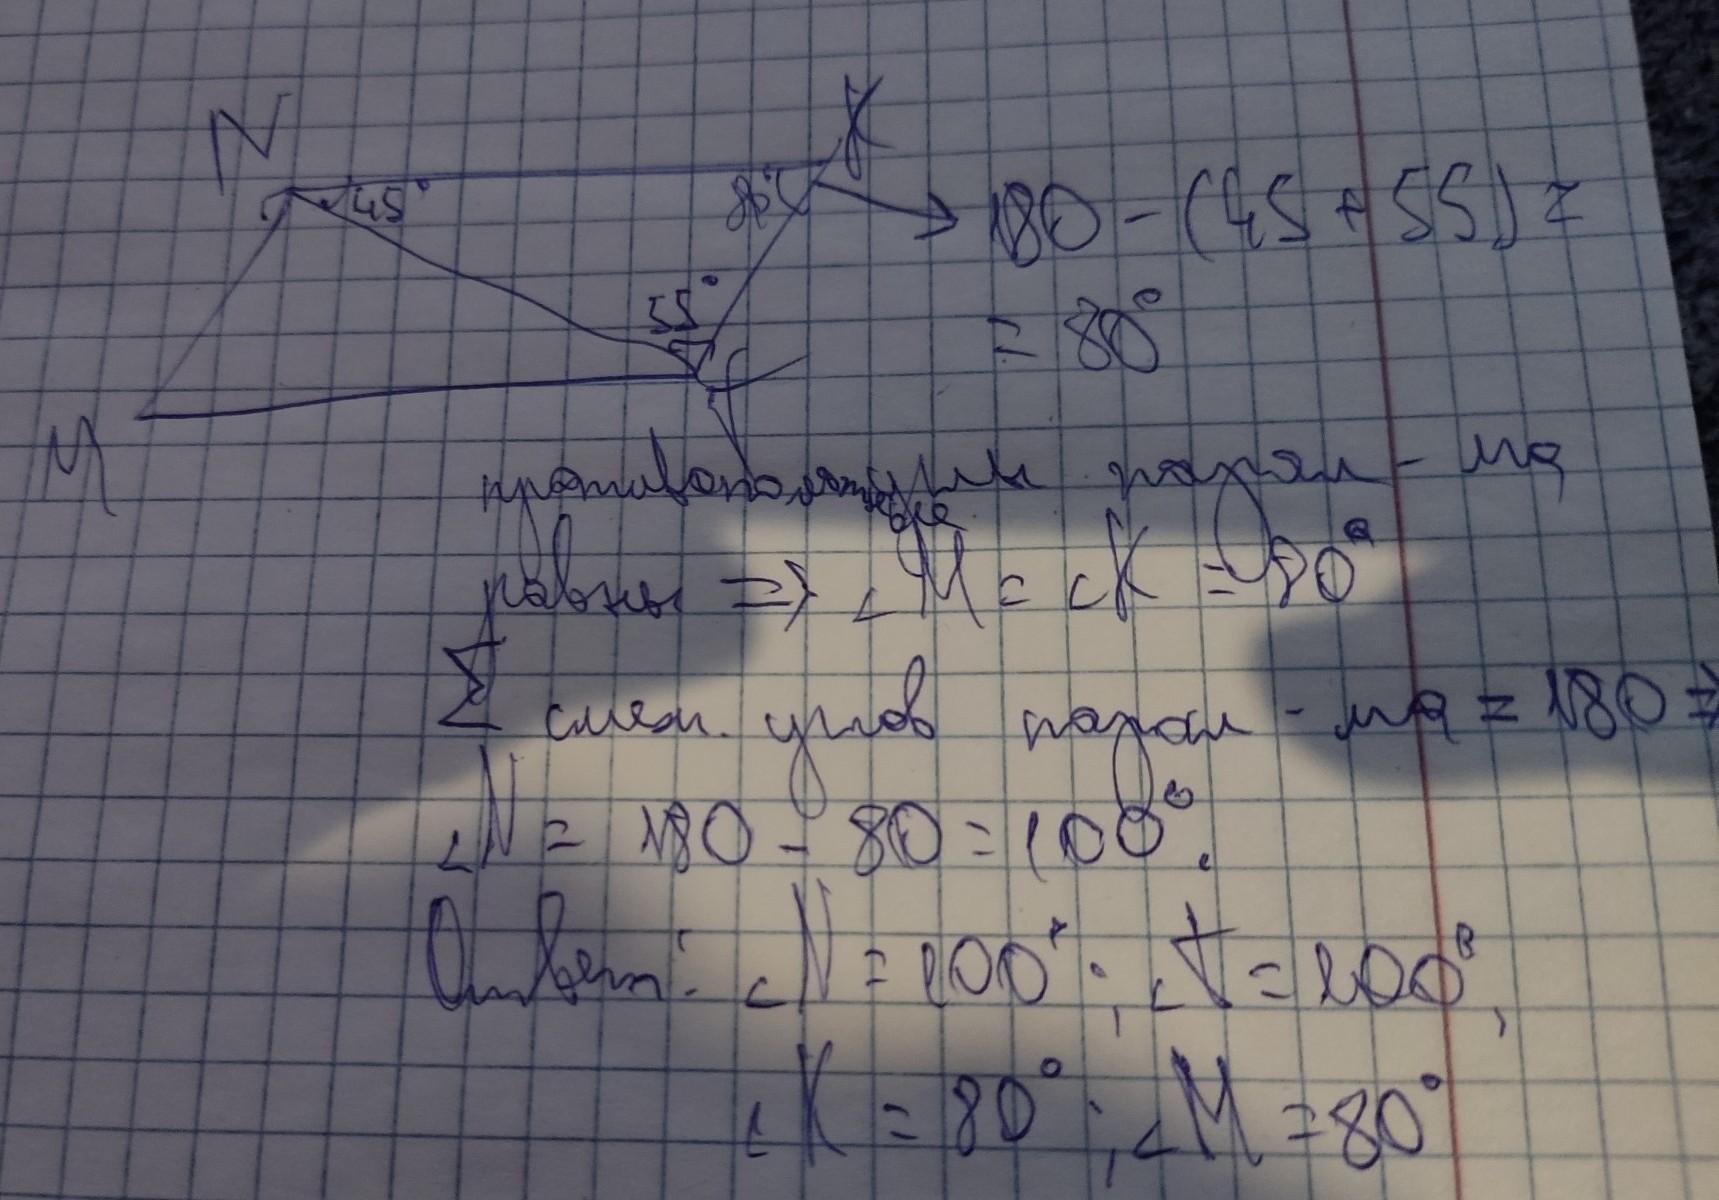 N
K
45°
80°
180 - (45 + 55) =
55°
= 80°
M
противоположные углы парал-ма
равны => ∠M = ∠K = 80°
Σ смеж. углов парал-ма = 180 =>
∠N = 180 - 80 = 100°.
Ответ: ∠N = 100°; ∠J = 100°,
∠K = 80°; ∠M = 80°